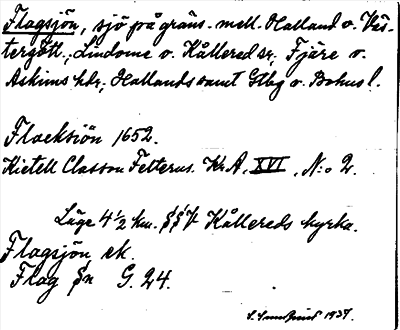 Flagsjön, sjö på gräns. mell. Halland o. Väs-
tergötl., Lindome o. Kållered sr, Fjäre o.
Askims hdr, Hallands samt Gtbg o. Bohus l.
Flacksiön 1652.
Kietell Classon Felterus. Kr.A. XVI, N:o 2.
Läge 4 1/2 km. SSV Kållereds kyrka.
Flagsjön, ek.
Flag Sn G. 24.
1937.